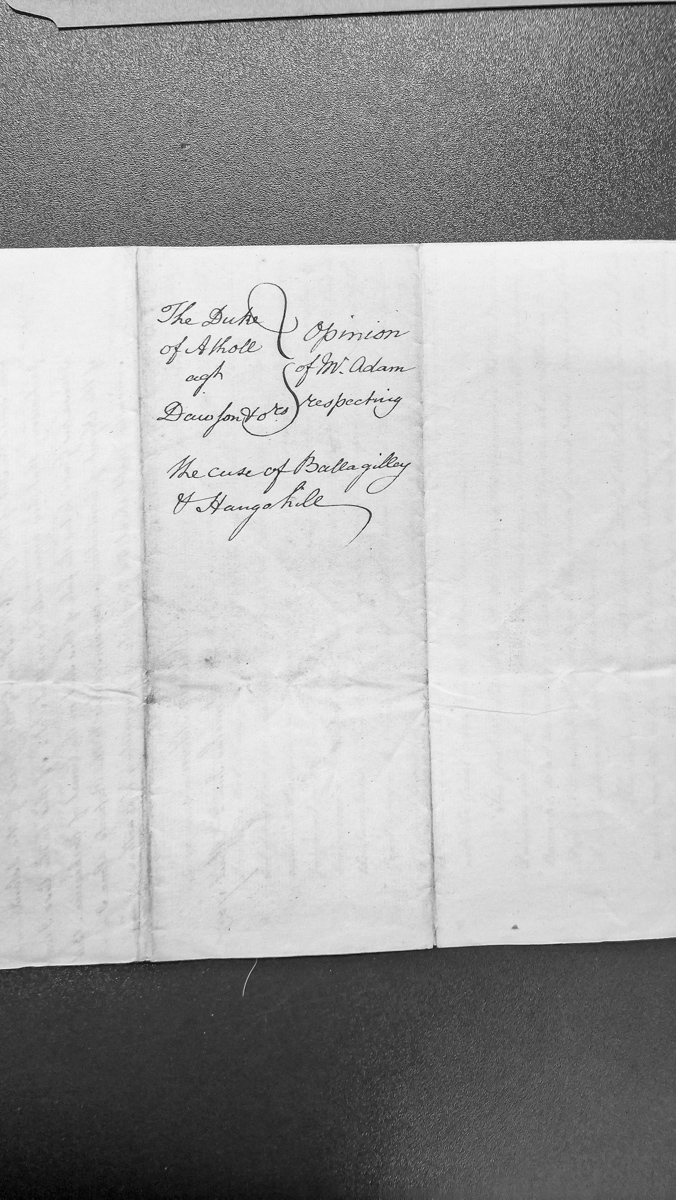 The Duke
of Atholl
agt
Dawson & ors
Opinion
of Mr. Adam
respecting
the case of Ballagilley
& Hangohill